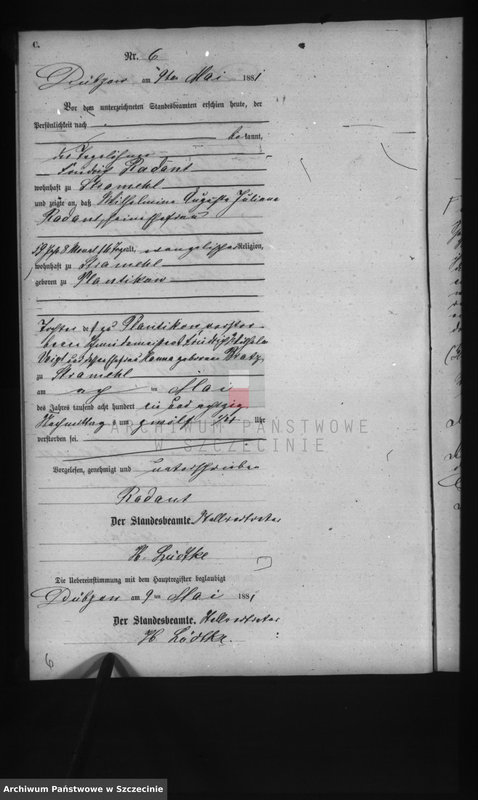 C.
Nr. 6
Dübzow am 9ten Mai 1881
Vor dem unterzeichneten Standesbeamten erschien heute, der
Persönlichkeit nach
bekannt,
der Tagelöhner
Radant
wohnhaft zu Stramehl
und zeigte an, daß Wilhelmine Auguste Juliane
Radant, seine Ehefrau
59 Jahr 8 Monat alt, evangelischer Religion,
wohnhaft zu Stramehl
geboren zu Plantikow
Tochter des zu Plantikow verstor-
benen Schneidemeisters
Voigt und dessen Ehefrau Hanna geborene
zu Stramehl
am Mai
des Jahres tausend acht hundert ein und achtzig
Nachmittag um zwölf Uhr
verstorben sei.
Vorgelesen, genehmigt und unterschrieben
Radant
Der Standesbeamte. Stellvertreter
H. Lüdtke
Die Uebereinstimmung mit dem Hauptregister beglaubigt
Dübzow am 9ten Mai 1881
Der Standesbeamte. Stellvertreter
H. Lüdtke
6
ARCHIWUM PAŃSTWOWE
W SZCZECINIE
Archiwum Państwowe w Szczecinie